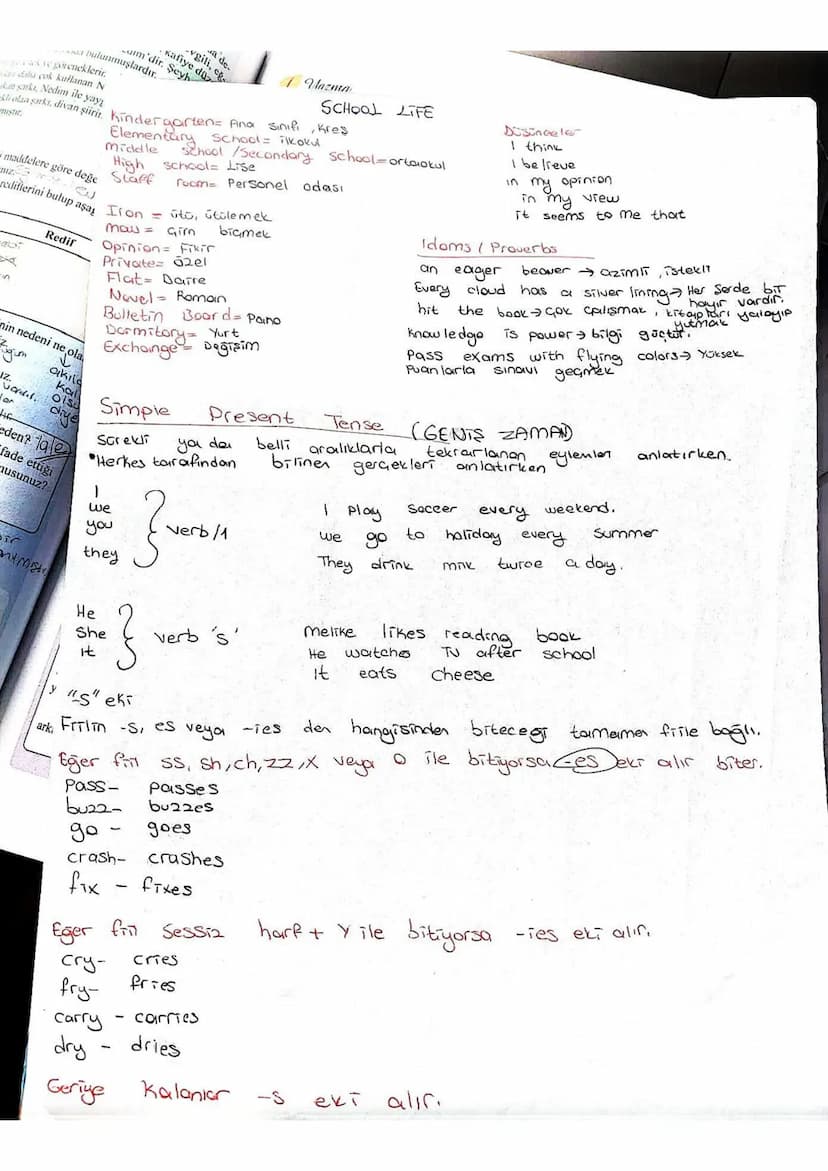 bulunmuşlardır.
göreneklerin
daha çok kullanan N
şarkı, Nedim ile yayg
olan şarkı, divan şiirin
mıştır.
maddelere göre değe
rediflerini bulup aşağ
Redif
nin nedeni ne ola
eden?
fade ettiği
musunuz?
SCHOOL LIFE
Kindergarten= Ana sınıfı, kreş
Elementary school= ilkokul
Middle school /Secondary school= ortaokul
High school= Lise
Staff room= Personel odası
Düşünceler
I think
I believe
in my opinion
in my view
it seems to me that
Iron = ütü, ütülemek
mow = çim biçmek
Opinion= Fikir
Private= özel
Flat= Daire
Novel = Roman
Bulletin Board= Pano
Dormitory= Yurt
Exchange = Değişim
Idoms / Proverbs
an eager beaver → azimli, istekli
Every cloud has a silver lining→ Her Şerde bir
hayır vardır.
hit the book→ çok çalışmak, kitapları yalayıp
yutmak
Knowledge is power→ bilgi güçtür.
Pass exams with flying colors→ Yüksek
Puanlarla sınavı geçmek
Simple Present Tense (GENİŞ ZAMAN)
Sürekli ya da belli aralıklarla tekrarlanan eylemler anlatırken.
•Herkes tarafından bilinen gerçekleri anlatırken
I
we
you
they
verb/1
I play soccer every weekend.
we go to holiday every summer
They drink milk twice a day.
He
She
it
verb 's'
Melike likes reading book
He watches TV after school
it eats cheese
"-S" eki
Fiilin -s, es veya -ies den hangisinden biteceği tamamen fiile bağlı.
Eğer fiil ss, sh, ch, zz, x veya o ile bitiyorsa -es eki alır biter.
Pass- passes
buzz- buzzes
go - goes
crash- crashes
fix - fixes
Eğer fiil sessiz harf + y ile bitiyorsa -ies eki alır.
cry- cries
fry- fries
carry - carries
dry - dries
Geriye kalanlar -s eki alır.